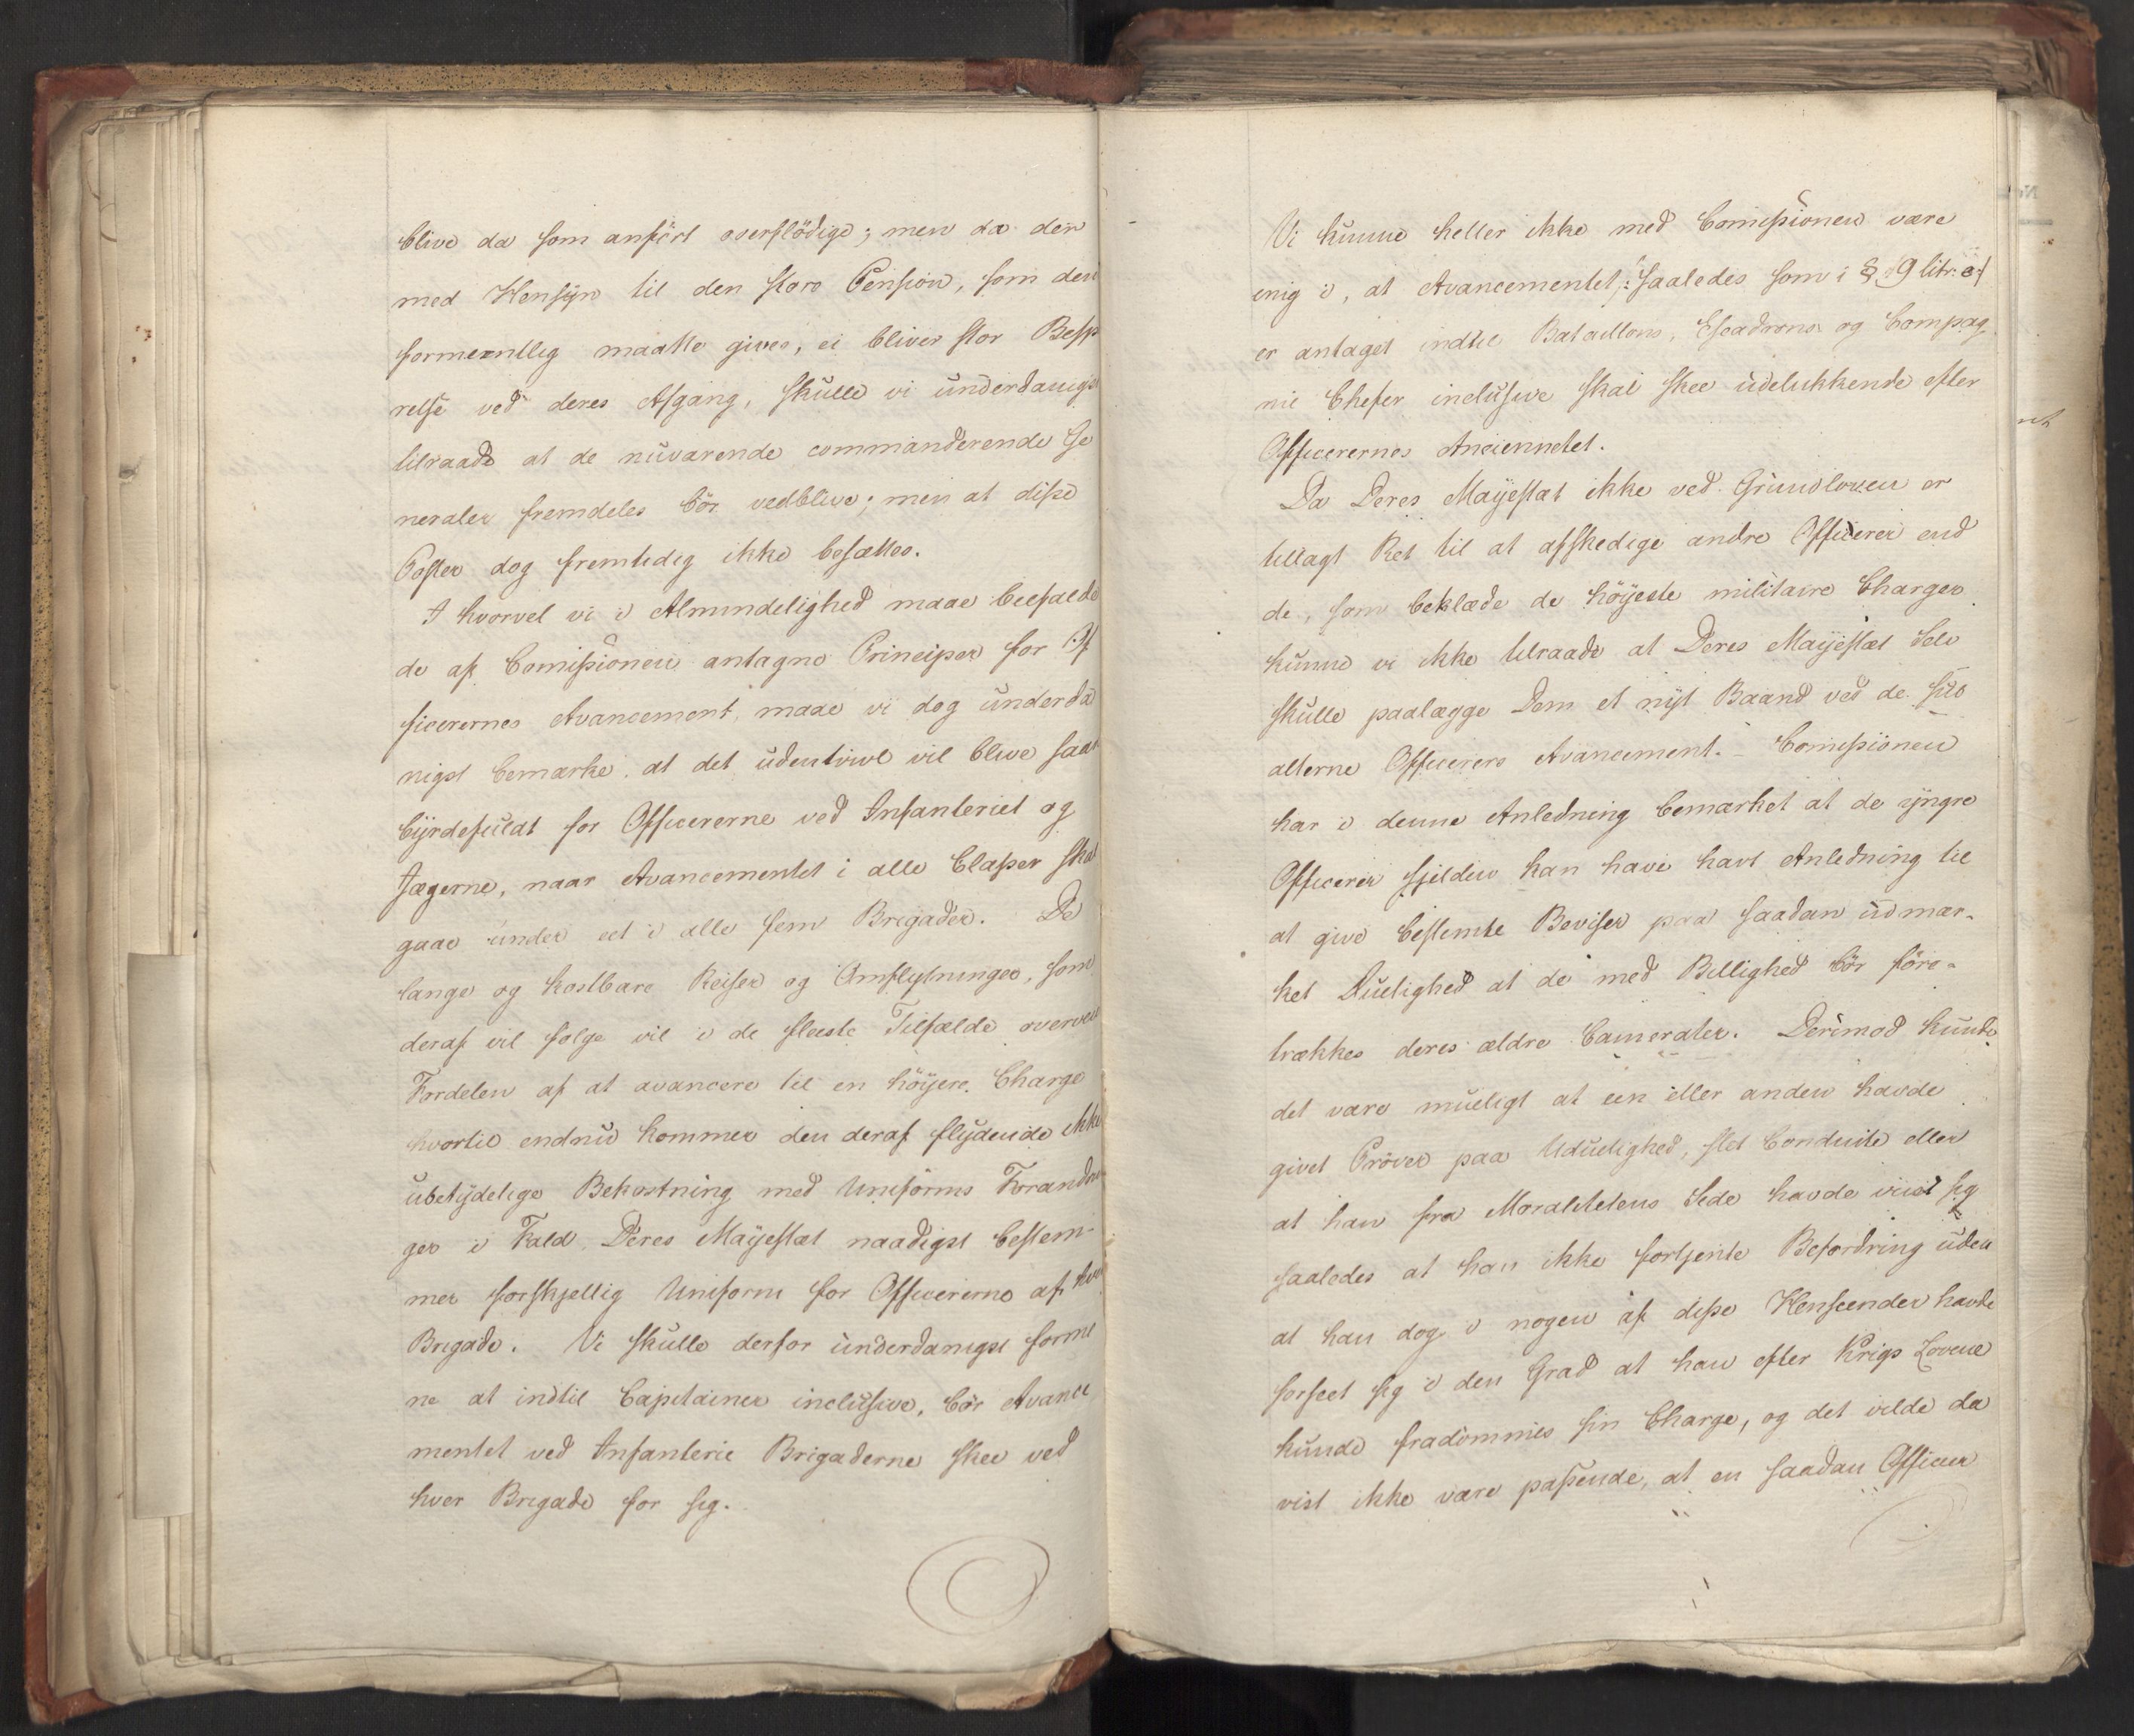 blive da som anført overflödige; men da der
med Hensyn til den store Pension, som den
formeentlig maatte gives, ei bliver stor Besp
relse ved deres Afgang, skulle vi underdanigst
tilraade at de nuværende commanderende Ge
neraler fremdeles bör vedblive; men at disse
Poster dog fremtidig ikke besættes.
I hvorvel vi i Almindelighed maae biefalde
de af Comissionen antagne Principer for Of
ficerernes Avancement, maae vi dog underda
nigst bemærke at det udentvivl vil blive saa
byrdefuldt for Officererne ved Infanteriet og
Jægerne, naar Avancementet i alle Classer skal
gaae under eet i alle fem Brigader. De
lange og kostbare Reiser og Omflytninger, som
deraf vil følge vil i de fleeste Tilfælde overveie
Fordelen af at avancere til en höyere Charge
hvortil endnu kommer den deraf flydende ikke
ubetydelige Bekostning med Uniforms Forandrin
ger i Fald Deres Mayestæt naadigst bestem-
mer forskjellig Uniform for Officererne af hver
Brigade. Vi skulle derfor underdanigst forme
ne at indtil Capitainer inclusive, bör Avance
mentet ved Infanterie Brigaderne skee ved
hver Brigade for sig.
Vi kunne heller ikke med Comissionen være
enig i, at Avancementet, saaledes som i § 9 litr. e
er antaget indtil Bataillons, Escadrons og Compag
nie Chefer inclusive skal skee udelukkende efter
Officerernes Anciennetet.
Da Deres Mayestæt ikke ved Grundloven er
tillagt Ret til at afskedige andre Officerer end
de, som beklæde de höyeste militaire Charger
kunne vi ikke tilraade at Deres Mayestæt Selv
skulle paalægge Dem et nyt Baand ved de sub
alterne Officerers Avancement. Comissionen
har i denne Anledning bemærket at de yngre
Officerer sjelden kan have havt Anledning til
at give bestemte Beviser paa saadan udmær-
ket Duelighed at de med Billighed bör före-
trækkes deres ældre Camerater. Derimod kunde
det være mueligt at een eller anden havde
givet Pröver paa Uduelighed, slet Conduite eller
at han fra Moralitetens Side havde viist sig
saaledes at han ikke fortjente Befordring uden
at han dog i nogen af disse Henseender havde
forseet sig i den Grad at han efter Krigs Lovene
kunde fradömmes sin Charge, og det vilde da
vist ikke være passende, at en saadan Officeer